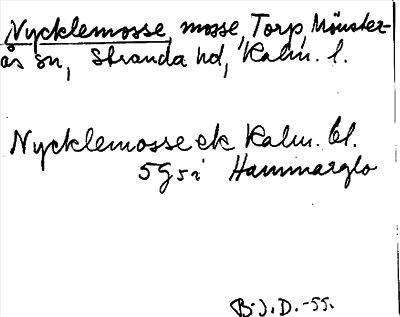 Nycklemosse, mosse, Torp, Mönster-
ås sn, Stranda hd, Kalm. l.
Nycklemosse ek Kalm. bl.
5g5i Hammarglo
B.J.D. -55.